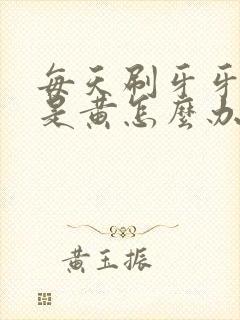 每天刷牙牙
是黄怎麼办
黄玉振